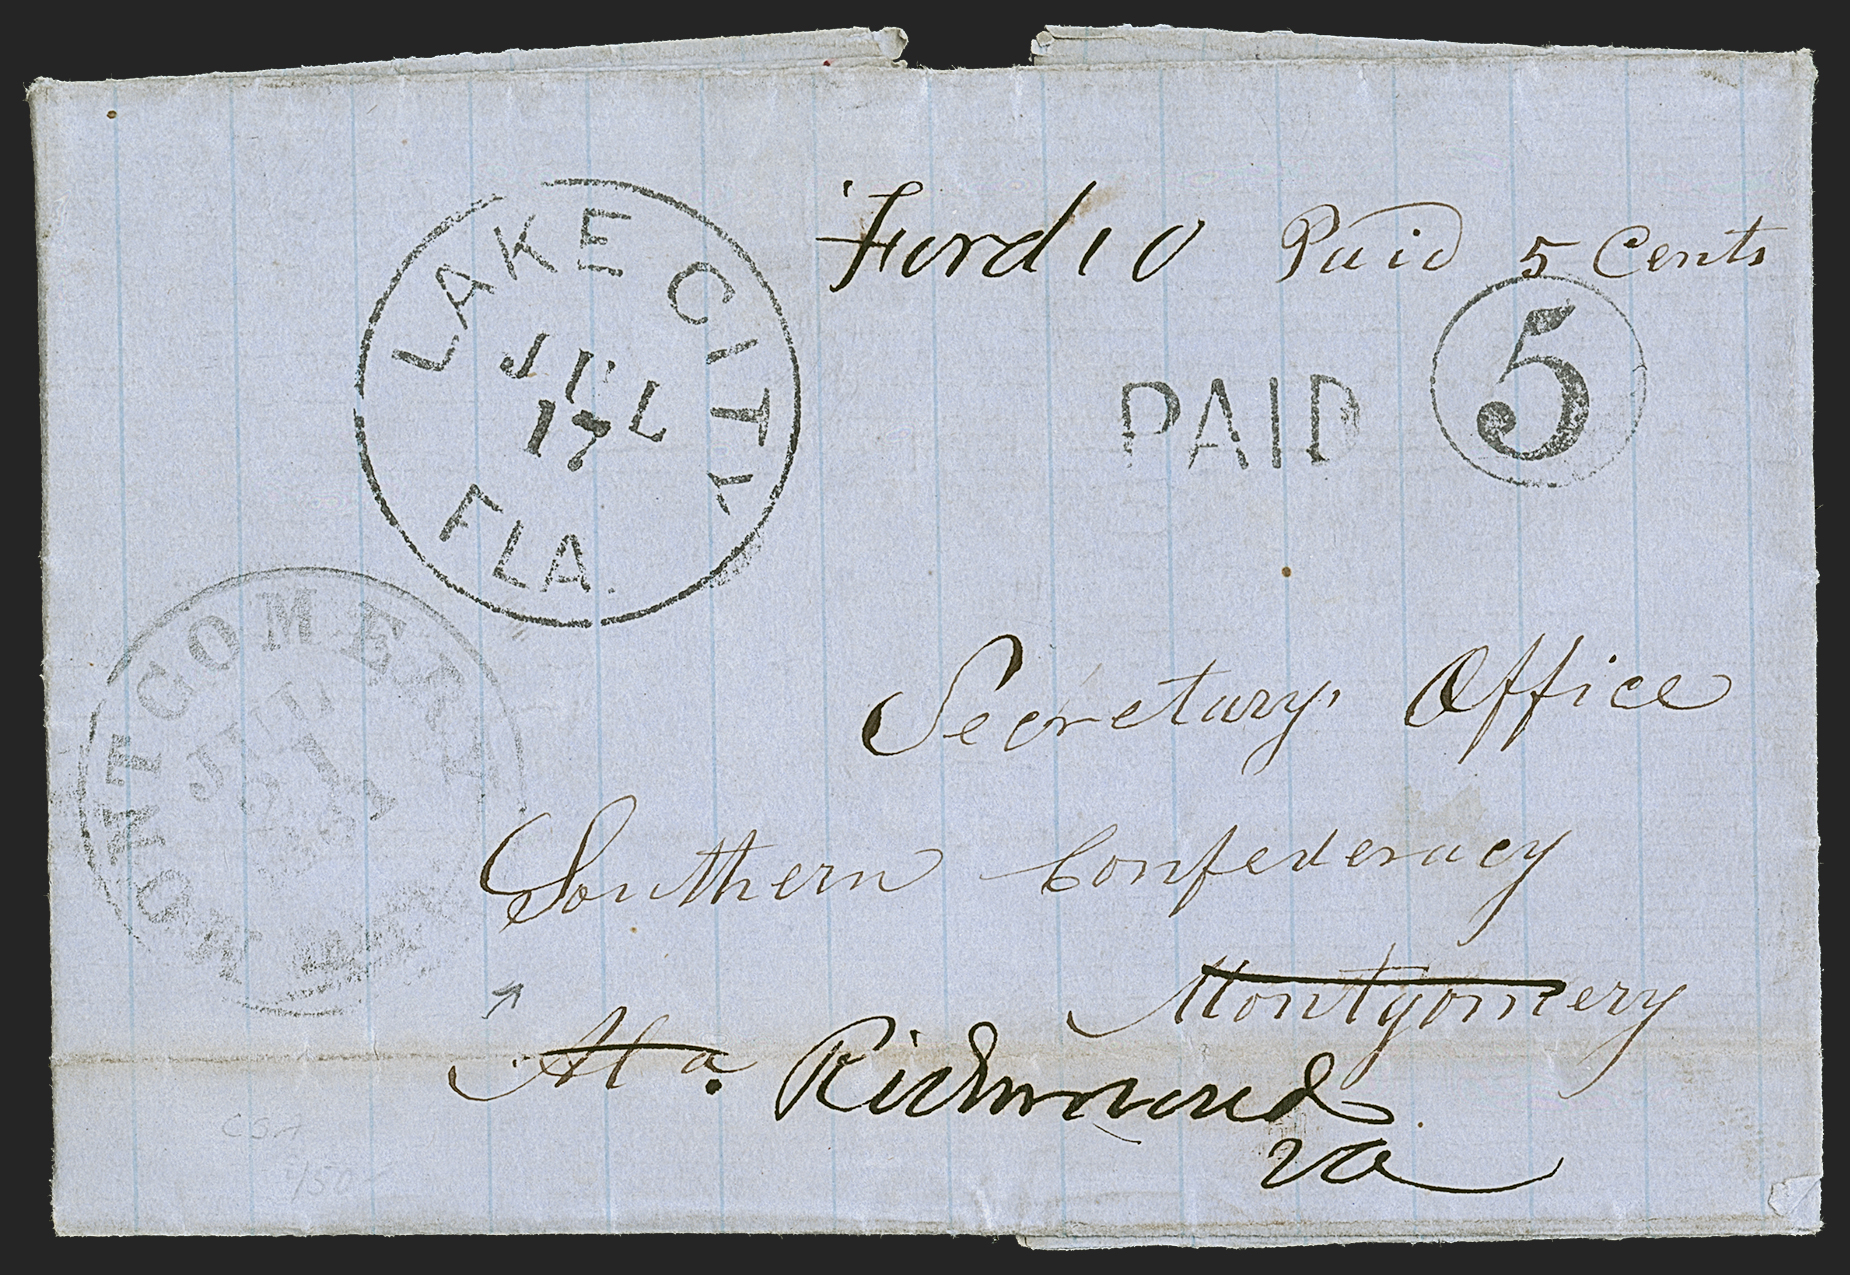 Ford 10 Paid 5 Cents
LAKE CITY
JUL
17
FLA.
PAID 5
MONTGOMERY
JUL
21
1861
Secretary Office
Southern Confederacy
Montgomery
Ala Richmond
Va
CSA
450-